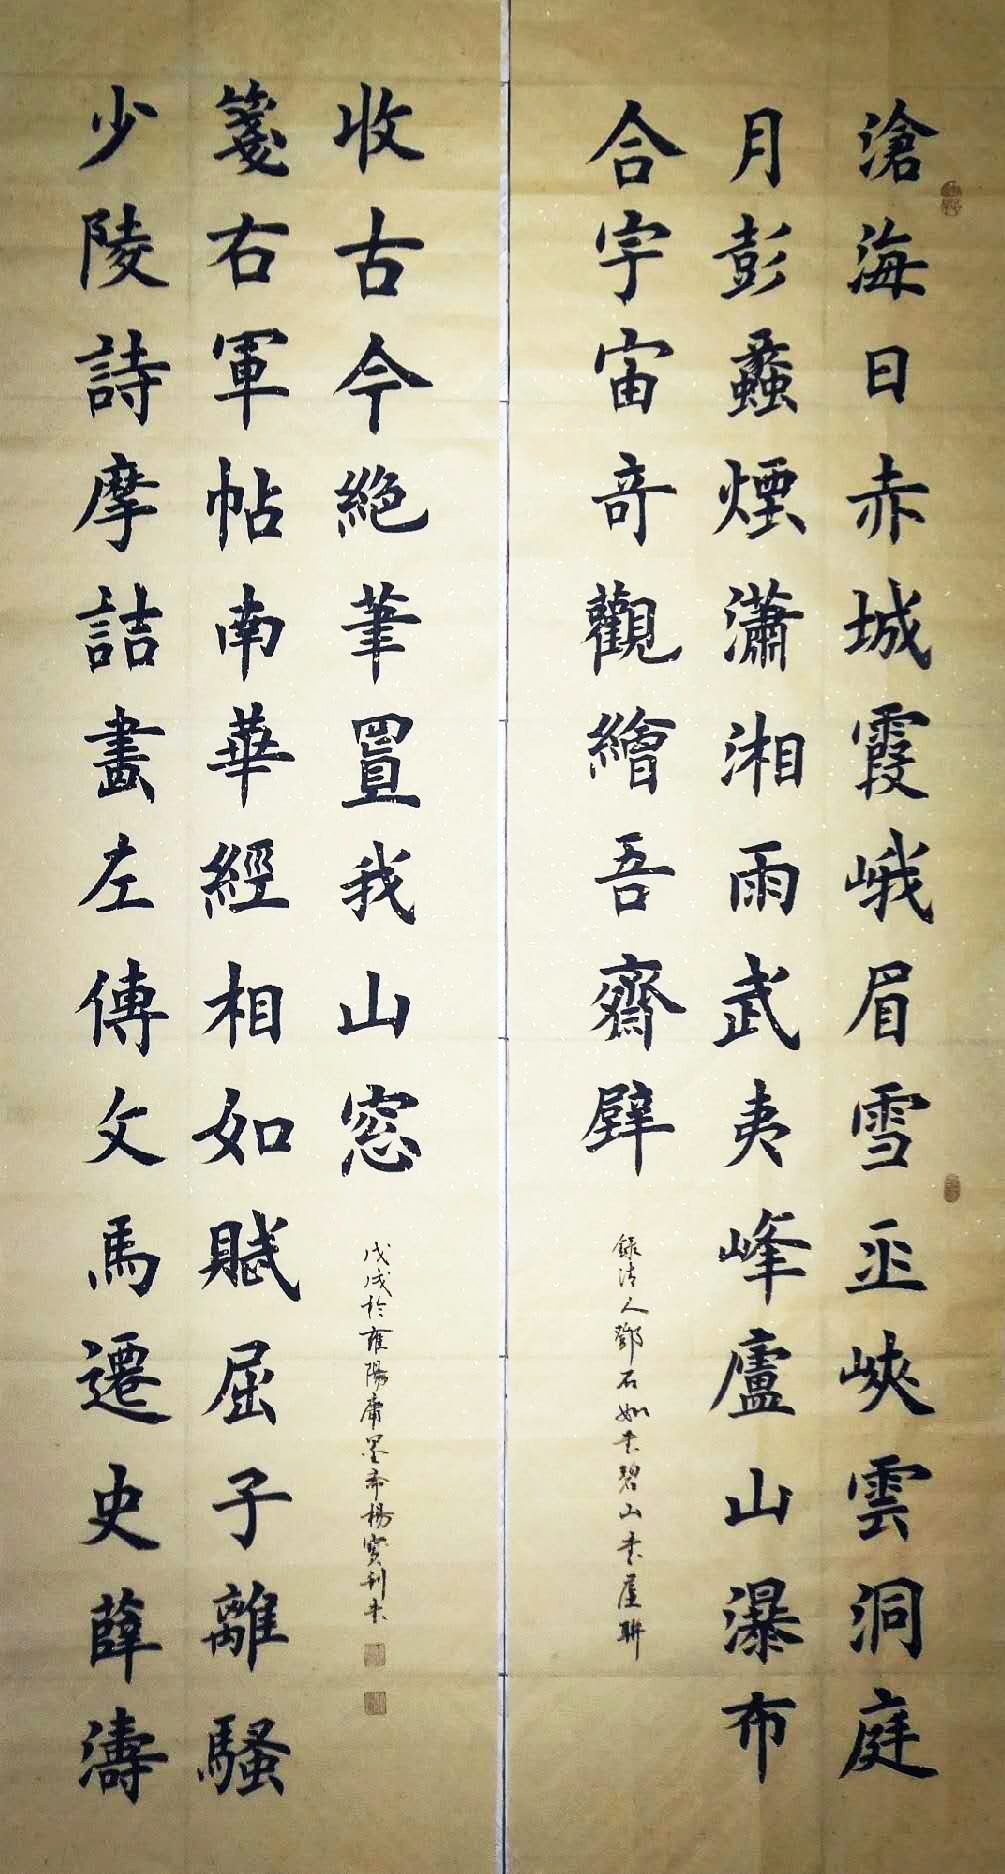 滄海日赤城霞峨眉雪巫峽雲洞庭
月彭蠡煙瀟湘雨武夷峰廬山瀑布
合宇宙竒觀繪吾齋壁
錄清人鄧石如書碧山書屋聯
少陵詩摩詰畫左傳文馬遷史薛濤
箋右軍帖南華經相如賦屈子離騷
收古今絕筆置我山窓
戊戌於雍陽庸墨斋楊寶利書